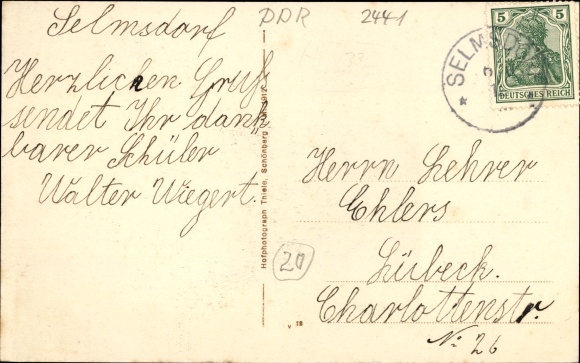 Selmsdorf
Herzlichen Gruß
sendet Ihr dank
barer Schüler
Walter Wiegert.
DDR 2441
SELMSDORF
5 5
DEUTSCHES REICH
Hofphotograph Thiele, Schönberg
Herrn Lehrer
Ehlers
Lübeck.
Charlottenstr.
No 26
20
v 18